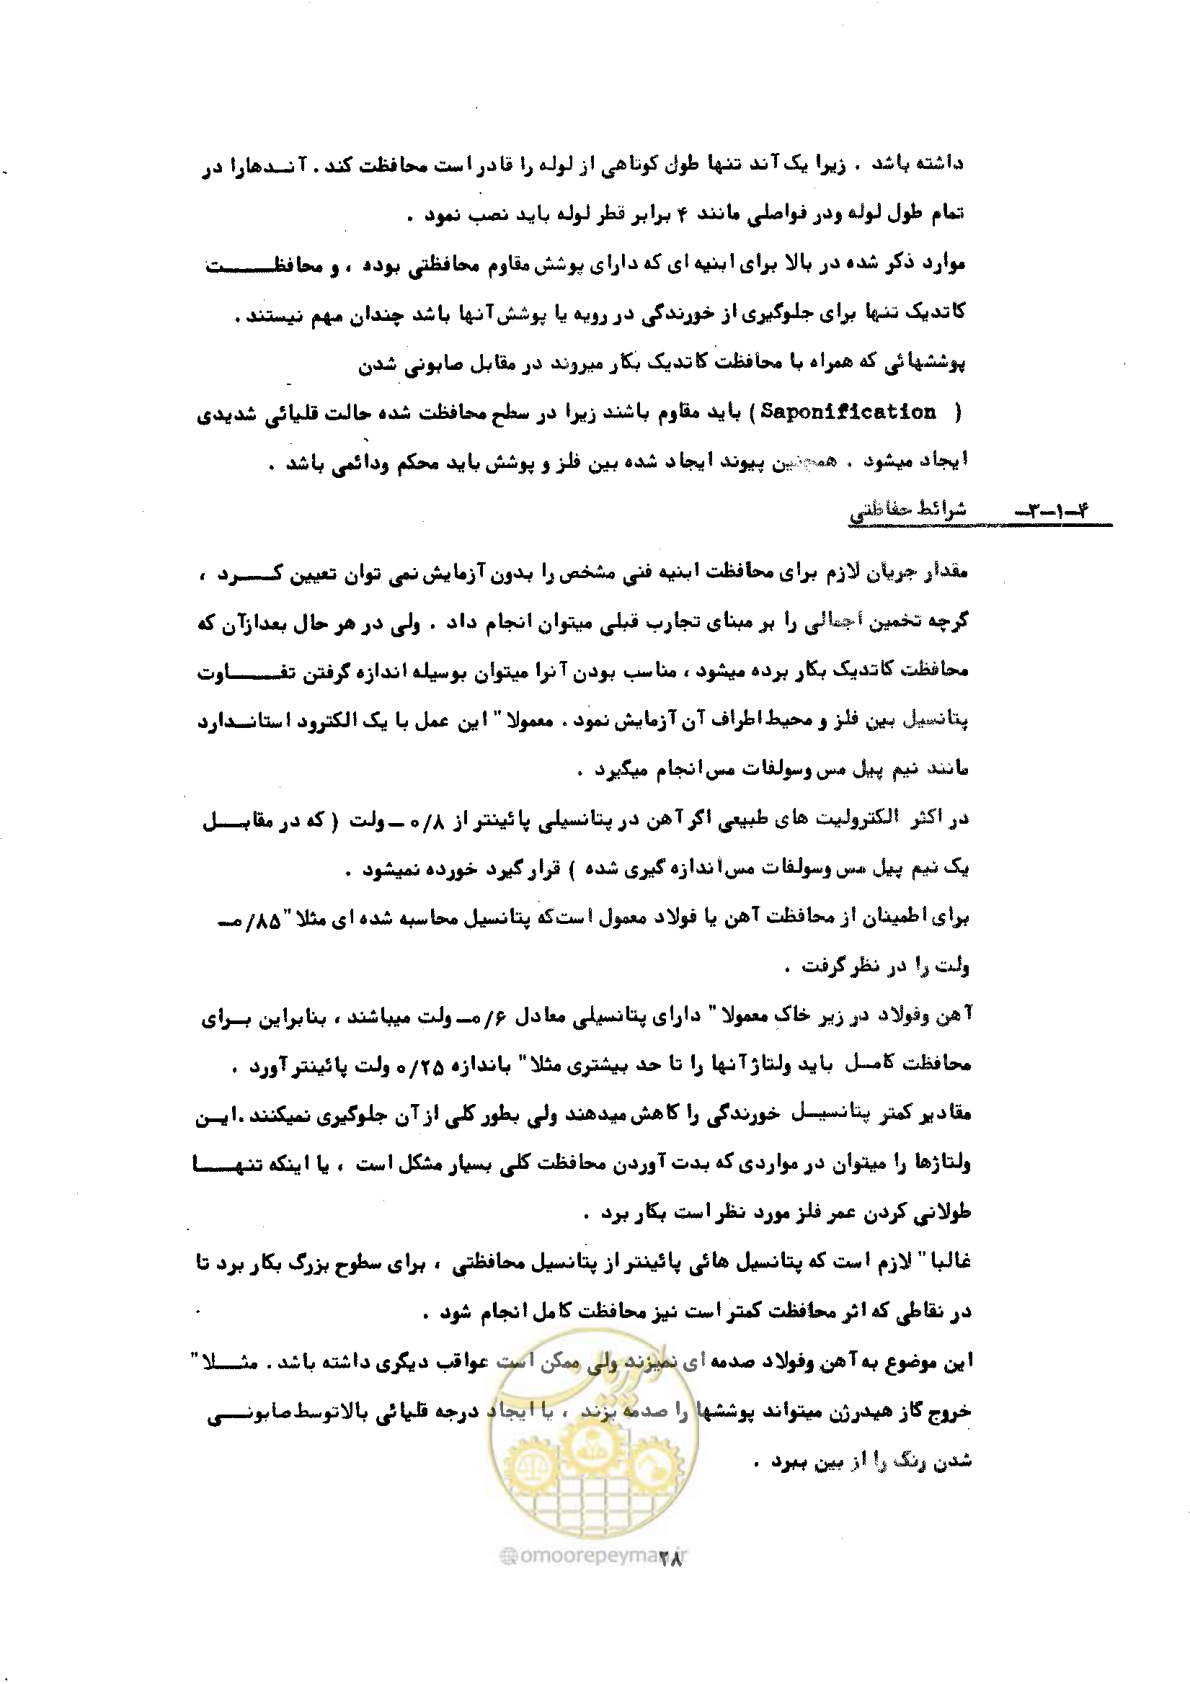 داشته باشد . زیرا یک آند تنها طول کوتاهی از لوله را قادر است محافظت کند . آندهارا در
تمام طول لوله ودر فواصلی مانند ۴ برابر قطر لوله باید نصب نمود .
موارد ذکر شده در بالا برای ابنیه ای که دارای پوشش مقاوم محافظتی بوده ، و محافظت
کاتدیک تنها برای جلوگیری از خورندگی در رویه یا پوشش آنها باشد چندان مهم نیستند .
پوششهائی که همراه با محافظت کاتدیک بکار میروند در مقابل صابونی شدن
( Saponification ) باید مقاوم باشند زیرا در سطح محافظت شده حالت قلیائی شدیدی
ایجاد میشود . همچنین پیوند ایجاد شده بین فلز و پوشش باید محکم ودائمی باشد .
۴-۱-۳- شرائط حفاظتی
مقدار جریان لازم برای محافظت ابنیه فنی مشخص را بدون آزمایش نمی توان تعیین کرد ،
گرچه تخمین اجمالی را بر مبنای تجارب قبلی میتوان انجام داد . ولی در هر حال بعدازآن که
محافظت کاتدیک بکار برده میشود ، مناسب بودن آنرا میتوان بوسیله اندازه گرفتن تفاوت
پتانسیل بین فلز و محیط اطراف آن آزمایش نمود . معمولا" این عمل با یک الکترود استاندارد
مانند نیم پیل مس وسولفات مس انجام میگیرد .
در اکثر الکترولیت های طبیعی اگر آهن در پتانسیلی پائینتر از ۰/۸ - ولت ( که در مقابل
یک نیم پیل مس وسولفات مس اندازه گیری شده ) قرار گیرد خورده نمیشود .
برای اطمینان از محافظت آهن یا فولاد معمول است که پتانسیل محاسبه شده ای مثلا" ۰/۸۵-
ولت را در نظر گرفت .
آهن وفولاد در زیر خاک معمولا" دارای پتانسیلی معادل ۰/۶- ولت میباشند ، بنابراین برای
محافظت کامل باید ولتاژ آنها را تا حد بیشتری مثلا" باندازه ۰/۲۵ ولت پائینتر آورد .
مقادیر کمتر پتانسیل خورندگی را کاهش میدهند ولی بطور کلی از آن جلوگیری نمیکنند .این
ولتاژها را میتوان در مواردی که بدت آوردن محافظت کلی بسیار مشکل است ، یا اینکه تنها
طولانی کردن عمر فلز مورد نظر است بکار برد .
غالبا" لازم است که پتانسیل هائی پائینتر از پتانسیل محافظتی ، برای سطوح بزرگ بکار برد تا
در نقاطی که اثر محافظت کمتر است نیز محافظت کامل انجام شود .
این موضوع به آهن وفولاد صدمه ای نمیزند ولی ممکن است عواقب دیگری داشته باشد . مثلا"
خروج گاز هیدرژن میتواند پوششها را صدمه بزند ، یا ایجاد درجه قلیائی بالاتوسط صابونی
شدن رنگ را از بین ببرد .
امور پیمان
@omoorepeyman.ir
۲۸